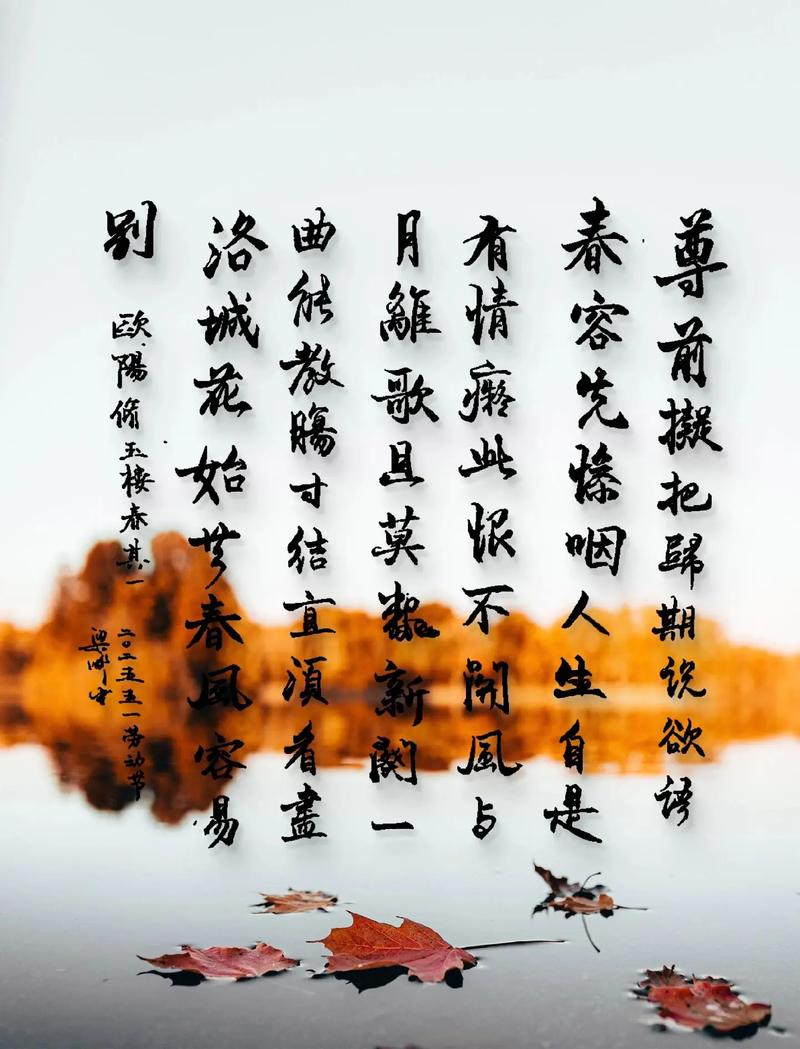 尊前擬把歸期説欲語
春容先慘咽人生自是
有情癡此恨不關風与
月離歌且莫翻新闋一
曲能教腸寸結直須看盡
洛城花始共春風容易
別
歐陽脩玉樓春其一
二〇二五五一劳动节
梁